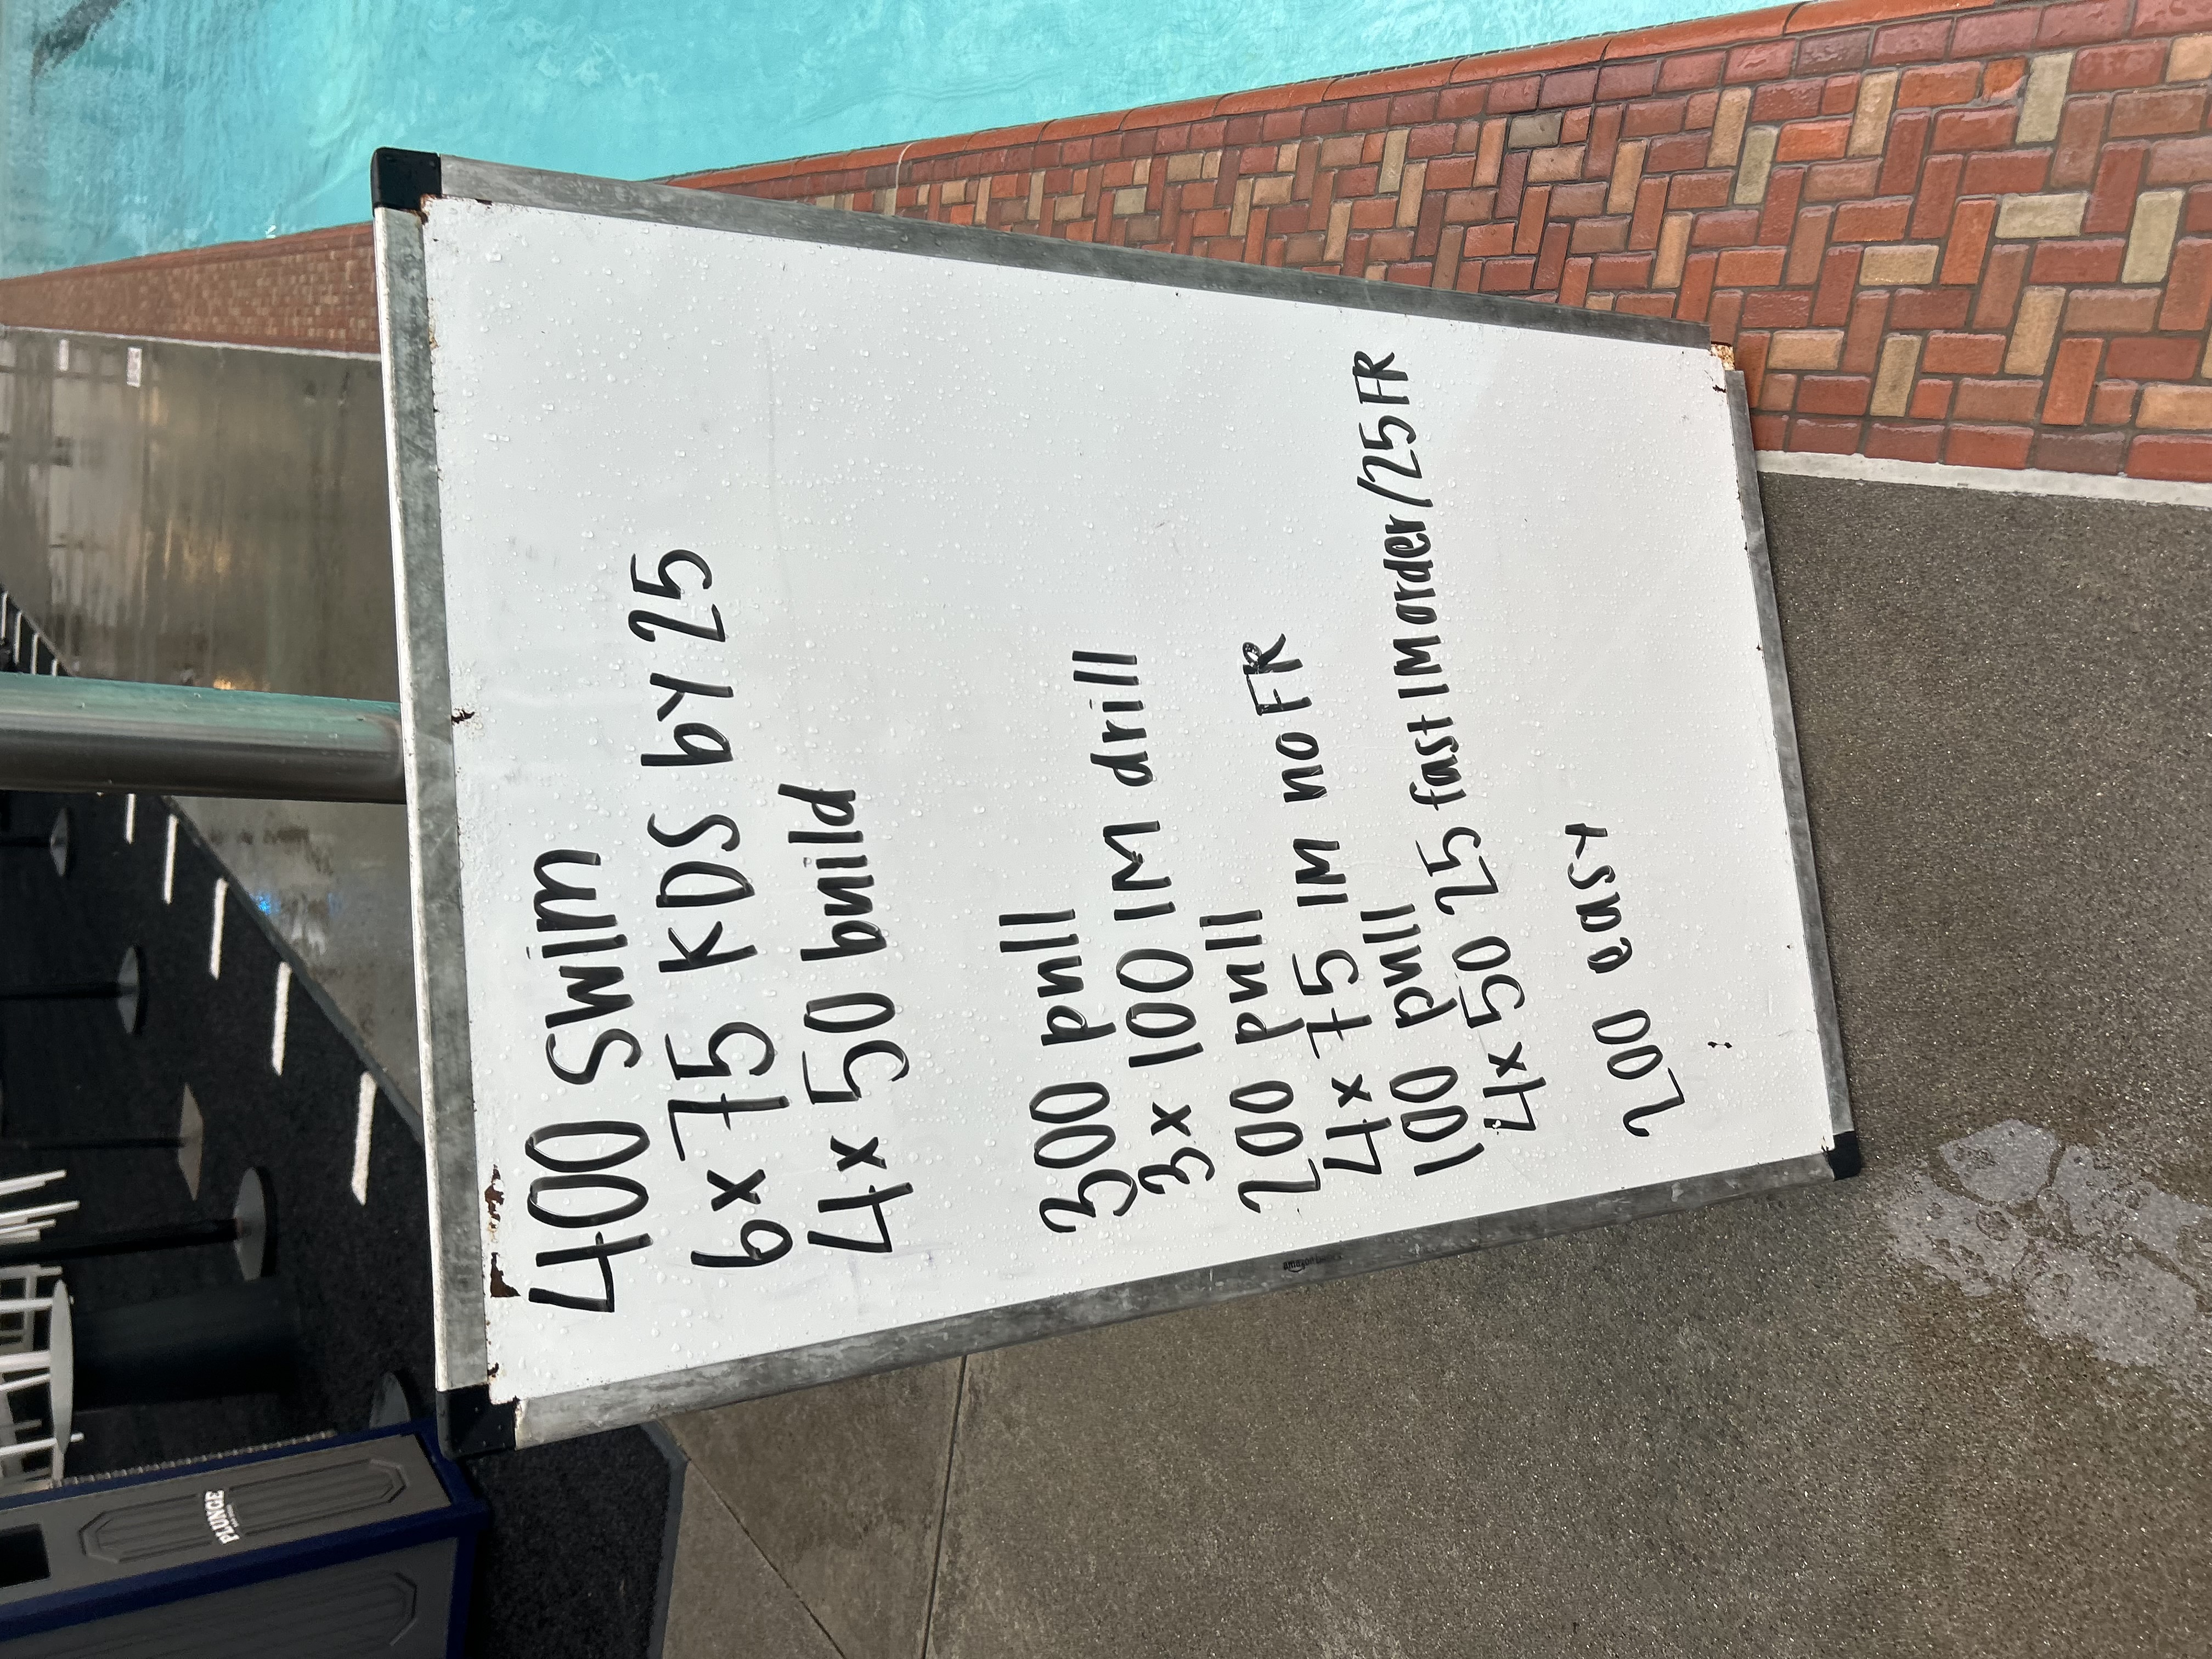 400 swim
6x 75 KDS by 25
4x 50 build
300 pull
3x 100 IM drill
200 pull
4x 75 IM no FR
100 pull
4x 50 25 fast IM order/25 FR
200 easy
PLUNGE
amazon basics